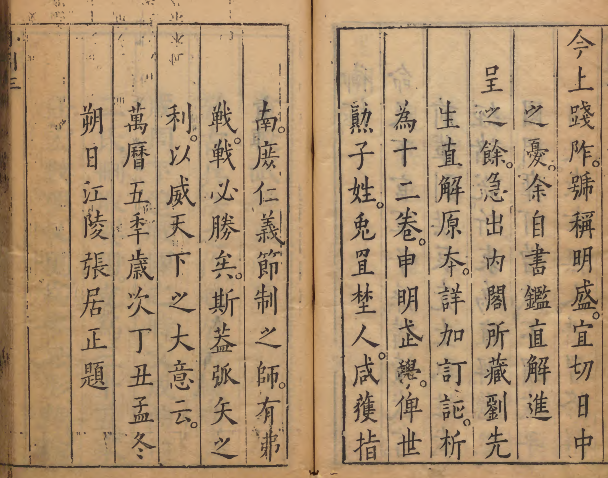 今上踐阼。號稱明盛。宜切日中
之憂。余自書鑑直解進
呈之餘。急出內閣所藏劉先
生直解原夲。詳加訂訛。析
為十二卷。申明武學。俾世
勲子姓。兎罝埜人。咸獲指
南。庻仁義節制之師。有弗
戰。戰必勝矣。斯葢弧矢之
利。以威天下之大意云。
萬曆五秊歲次丁丑孟冬
朔日江陵張居正題